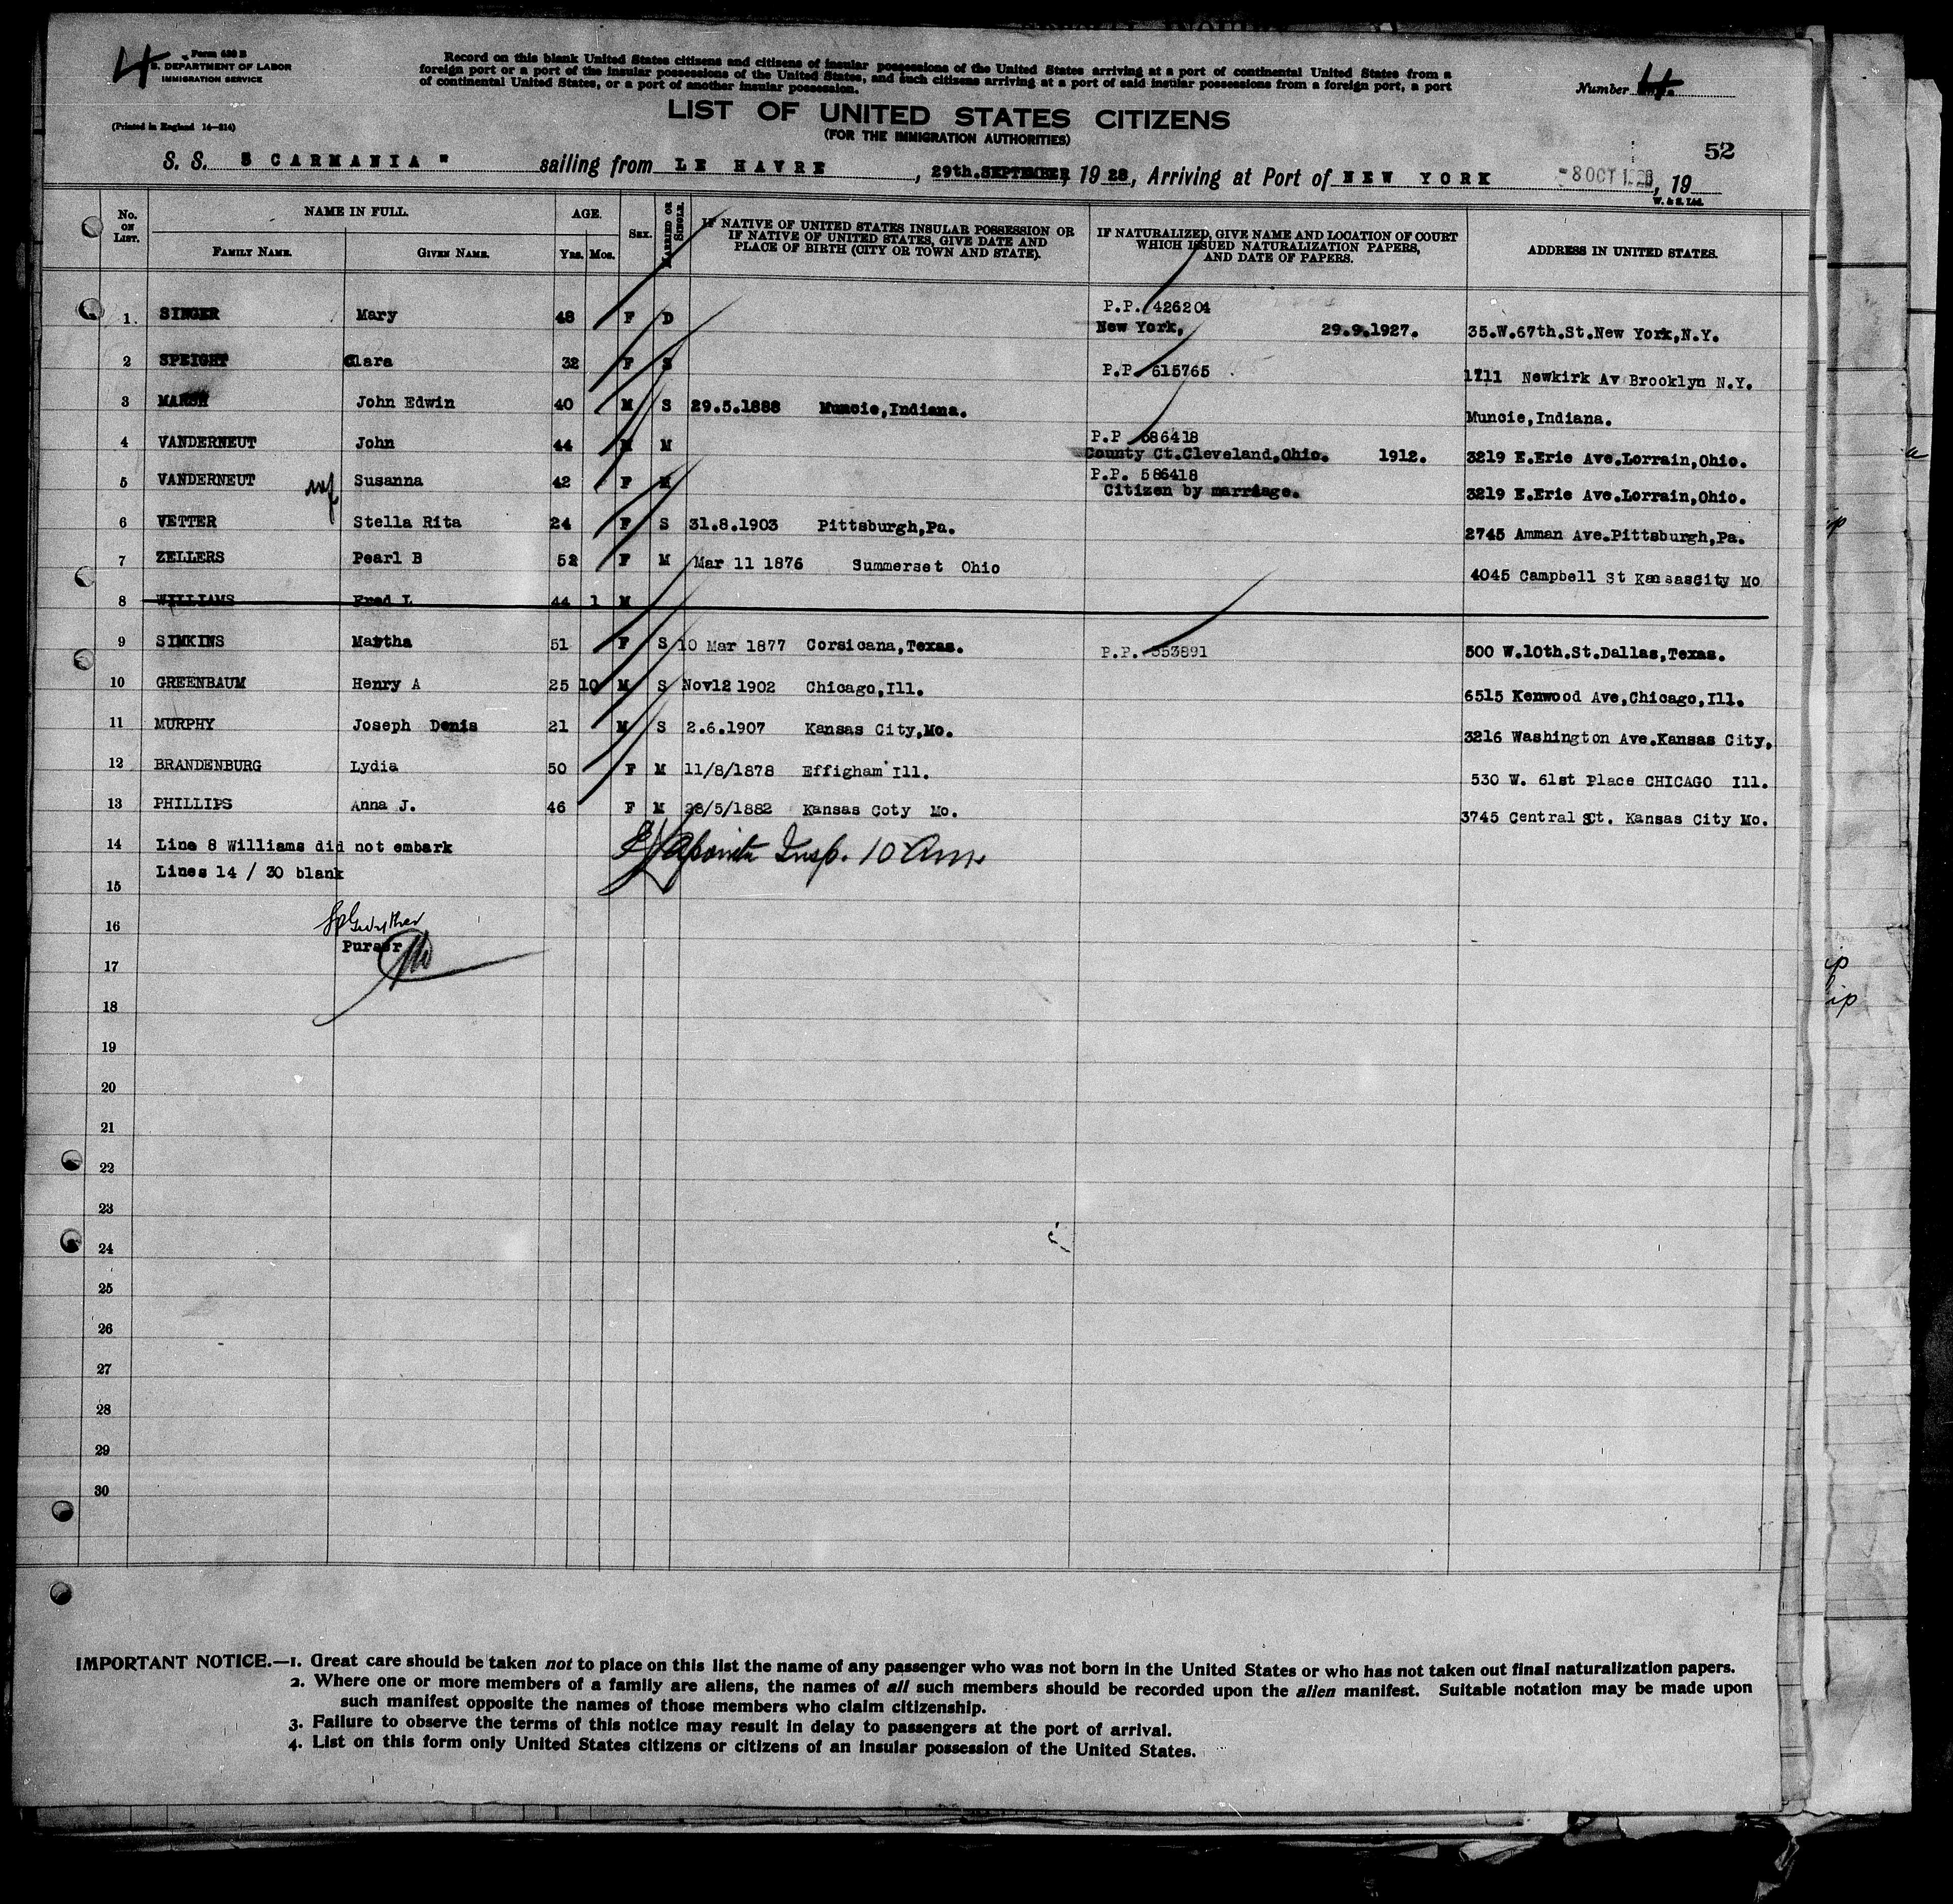 4
Form 630 B
S. DEPARTMENT OF LABOR
IMMIGRATION SERVICE
(Printed in England 14—214)
Record on this blank United States citizens and citizens of insular possessions of the United States arriving at a port of continental United States from a
foreign port or a port of the insular possessions of the United States, and such citizens arriving at a port of said insular possessions from a foreign port, a port
of continental United States, or a port of another insular possession.
Number 4.
LIST OF UNITED STATES CITIZENS
(FOR THE IMMIGRATION AUTHORITIES)
52
S. S. " CARMANIA " sailing from LE HAVRE , 29th.SEPTEMBER, 1928, Arriving at Port of NEW YORK -8 OCT 1928, 19
W. & S. Ltd.
No. ON LIST.
NAME IN FULL.
FAMILY NAME. GIVEN NAME.
AGE.
YRS. MOS.
SEX.
MARRIED OR SINGLE.
IF NATIVE OF UNITED STATES INSULAR POSSESSION OR
IF NATIVE OF UNITED STATES, GIVE DATE AND
PLACE OF BIRTH (CITY OR TOWN AND STATE).
IF NATURALIZED, GIVE NAME AND LOCATION OF COURT
WHICH ISSUED NATURALIZATION PAPERS,
AND DATE OF PAPERS.
ADDRESS IN UNITED STATES.
1 SINGER Mary 48 F D P.P. 426204
New York, 29.9.1927. 35.W.67th.St.New York,N.Y.
2 SPEIGHT Clara 32 F S P.P. 615765 1711 Newkirk Av Brooklyn N.Y.
3 MARSH John Edwin 40 M S 29.5.1888 Muncie,Indiana. Muncie,Indiana.
4 VANDERNEUT John 44 M M P.P 586418
County Ct.Cleveland,Ohio. 1912. 3219 E.Erie Ave.Lorrain,Ohio.
5 VANDERNEUT wf Susanna 42 F M P.P. 586418
Citizen by marriage. 3219 E.Erie Ave.Lorrain,Ohio.
6 VETTER Stella Rita 24 F S 31.8.1903 Pittsburgh,Pa. 2745 Amman Ave.Pittsburgh,Pa.
7 ZELLERS Pearl B 52 F M Mar 11 1876 Summerset Ohio 4045 Campbell St KansasCity Mo
8 WILLIAMS Fred L 44 1 M
9 SIMKINS Martha 51 F S 10 Mar 1877 Corsicana,Texas. P.P. 553891 500 W.10th.St.Dallas,Texas.
10 GREENBAUM Henry A 25 10 M S Nov12 1902 Chicago,Ill. 6515 Kenwood Ave,Chicago,Ill.
11 MURPHY Joseph Denis 21 M S 2.6.1907 Kansas City,Mo. 3216 Washington Ave.Kansas City.
12 BRANDENBURG Lydia 50 F M 11/8/1878 Effigham Ill. 530 W. 61st Place CHICAGO Ill.
13 PHILLIPS Anna J. 46 F M 28/5/1882 Kansas Coty Mo. 3745 Central St. Kansas City Mo.
14 Line 8 Williams did not embark
Insp. 10 Am
Lines 14 / 30 blank
15
16
Purser
17
18
19
20
21
22
23
24
25
26
27
28
29
30
IMPORTANT NOTICE.—1. Great care should be taken not to place on this list the name of any passenger who was not born in the United States or who has not taken out final naturalization papers.
2. Where one or more members of a family are aliens, the names of all such members should be recorded upon the alien manifest. Suitable notation may be made upon
such manifest opposite the names of those members who claim citizenship.
3. Failure to observe the terms of this notice may result in delay to passengers at the port of arrival.
4. List on this form only United States citizens or citizens of an insular possession of the United States.